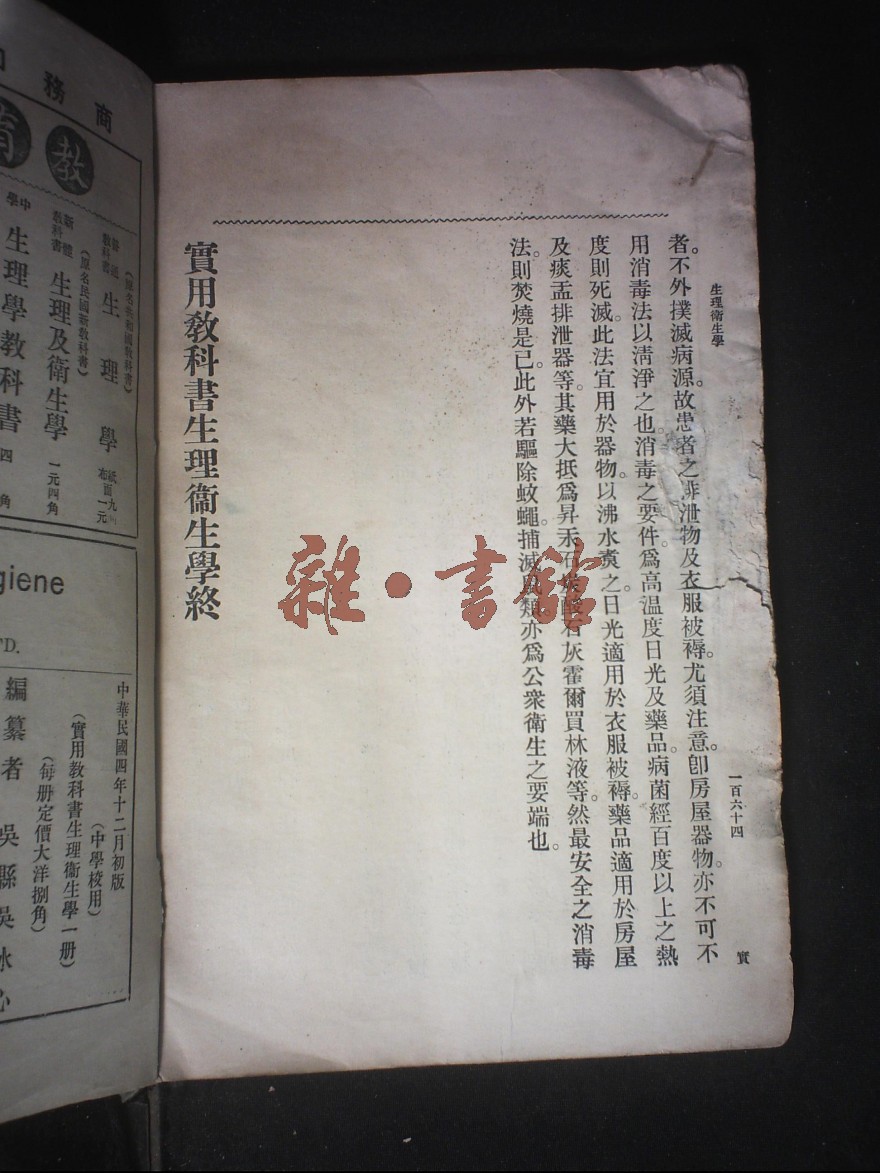 生理衛生學
一百六十四
實
者。不外撲滅病源。故患者之排泄物及衣服被褥。尤須注意。卽房屋器物。亦不可不
用消毒法以淸淨之也。消毒之要件。爲高溫度日光及藥品。病菌經百度以上之熱
度則死滅。此法宜用於器物。以沸水煑之。日光適用於衣服被褥。藥品適用於房屋
及痰盂排泄器等。其藥大抵爲昇汞石炭酸石灰霍爾買林液等。然最安全之消毒
法。則焚燒是已。此外若驅除蚊蠅。捕滅鼠類。亦爲公衆衛生之要端也。
實用敎科書生理衞生學終
雜·書館
商務
敎育
普通敎科書 生理學 紙面九角 布面一元
(原名共和國敎科書)
新體敎科書 生理及衛生學 一元四角
(原名民國新敎科書)
中學 生理學敎科書 四角
giene
TD.
中華民國四年十二月初版
(中學校用)
(實用敎科書生理衞生學一册)
(每册定價大洋捌角)
編纂者 吳縣吳冰心